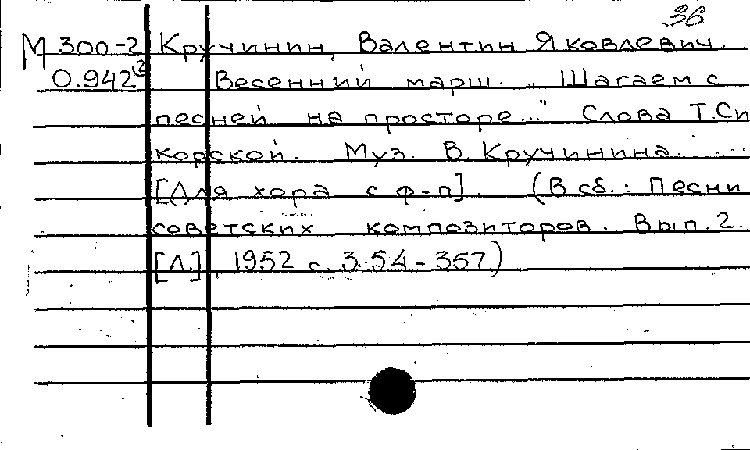 36
М 300-2 Кручинин, Валентин Яковлевич.
0.942(2) Весенний марш. „Шагаем с
песней на просторе..." Слова Т.Си
корской. Муз. В. Кручинина.
[Для хора с ф-п]. (В сб.: Песни
советских композиторов. Вып. 2.
[Л.], 1952 с. 354-357)